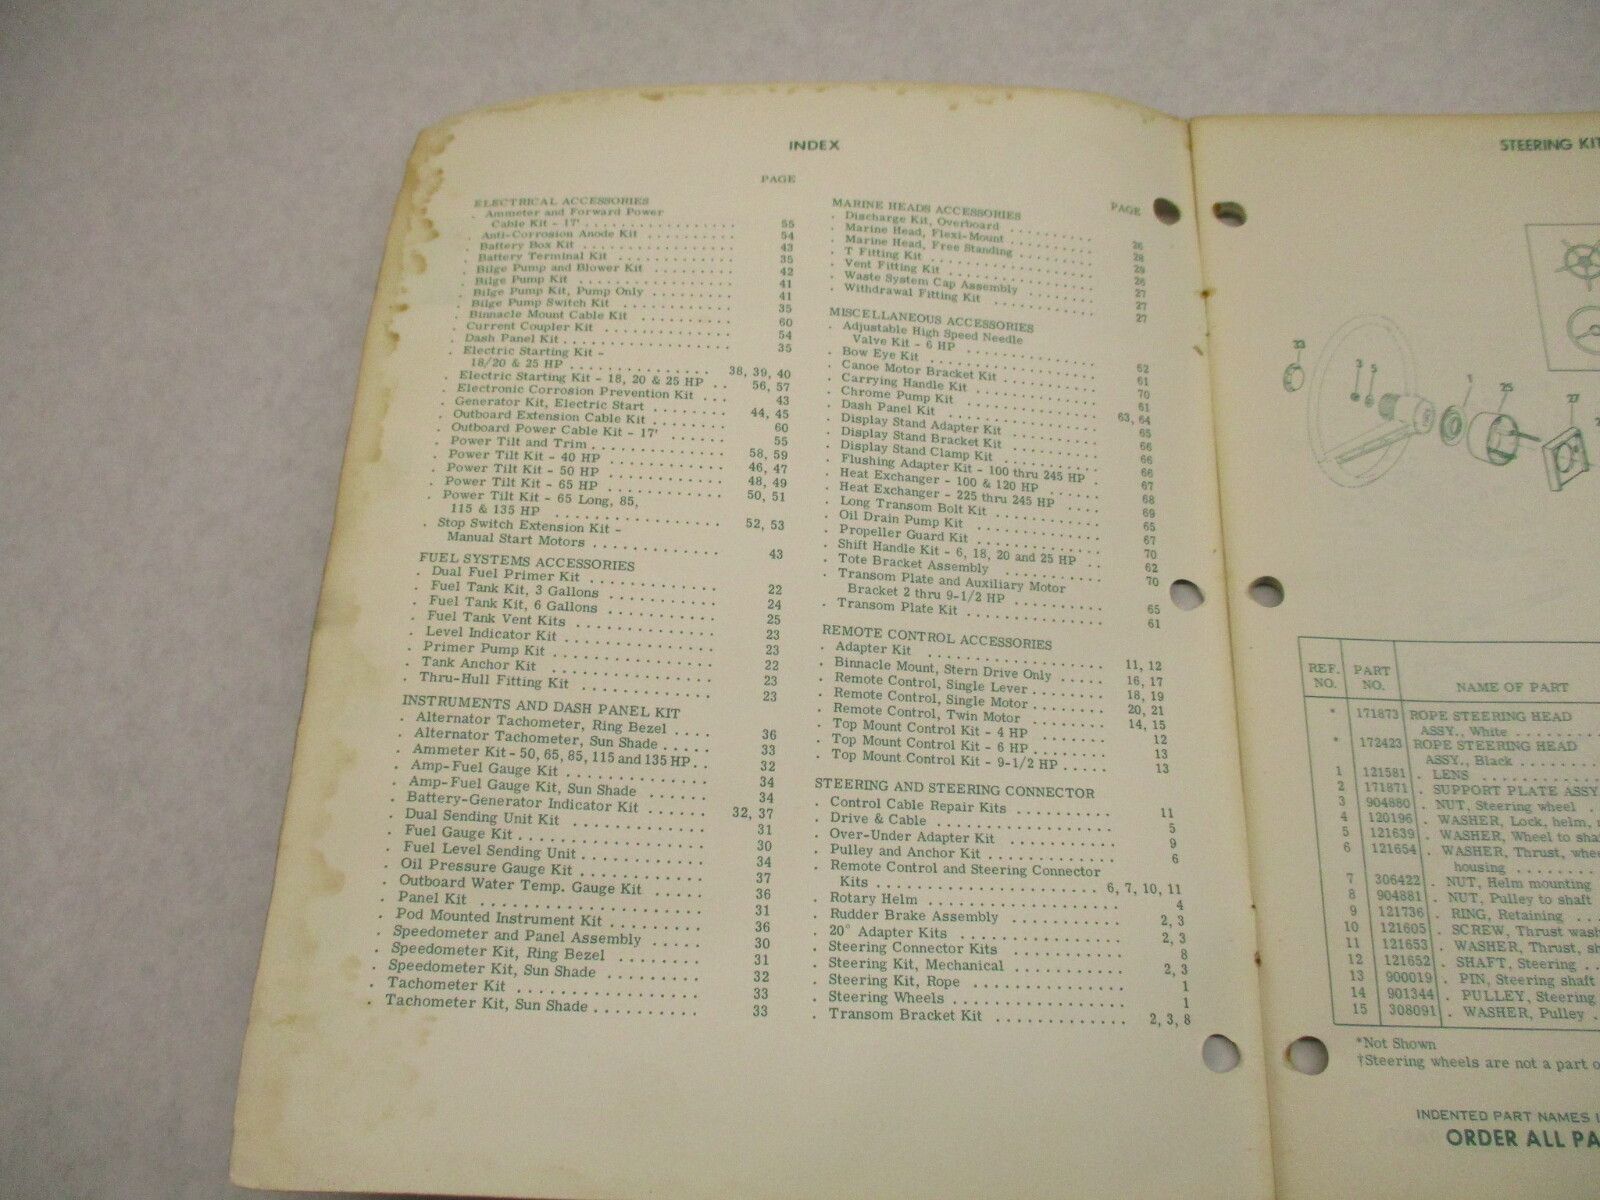 INDEX
PAGE
ELECTRICAL ACCESSORIES
. Ammeter and Forward Power
Cable Kit - 17' . . . . . . . . . . . . . . . . 55
. Anti-Corrosion Anode Kit . . . . . . . . . . 54
. Battery Box Kit . . . . . . . . . . . . . . . . 43
. Battery Terminal Kit . . . . . . . . . . . . . 35
. Bilge Pump and Blower Kit . . . . . . . . . 42
. Bilge Pump Kit . . . . . . . . . . . . . . . . 41
. Bilge Pump Kit, Pump Only . . . . . . . . . 41
. Bilge Pump Switch Kit . . . . . . . . . . . . 35
. Binnacle Mount Cable Kit . . . . . . . . . . 60
. Current Coupler Kit . . . . . . . . . . . . . 54
. Dash Panel Kit . . . . . . . . . . . . . . . . 35
. Electric Starting Kit -
18/20 & 25 HP . . . . . . . . . . . . . . 38, 39, 40
. Electric Starting Kit - 18, 20 & 25 HP . . 56, 57
. Electronic Corrosion Prevention Kit . . . 43
. Generator Kit, Electric Start . . . . . . . . 44, 45
. Outboard Extension Cable Kit . . . . . . . . 60
. Outboard Power Cable Kit - 17' . . . . . . 55
. Power Tilt and Trim . . . . . . . . . . . . . 58, 59
. Power Tilt Kit - 40 HP . . . . . . . . . . . 46, 47
. Power Tilt Kit - 50 HP . . . . . . . . . . . 48, 49
. Power Tilt Kit - 65 HP . . . . . . . . . . . 50, 51
. Power Tilt Kit - 65 Long, 85,
115 & 135 HP . . . . . . . . . . . . . . . . 52, 53
. Stop Switch Extension Kit -
Manual Start Motors . . . . . . . . . . . . 43
FUEL SYSTEMS ACCESSORIES
. Dual Fuel Primer Kit . . . . . . . . . . . . 22
. Fuel Tank Kit, 3 Gallons . . . . . . . . . . 24
. Fuel Tank Kit, 6 Gallons . . . . . . . . . . 25
. Fuel Tank Vent Kits . . . . . . . . . . . . . 23
. Level Indicator Kit . . . . . . . . . . . . . 23
. Primer Pump Kit . . . . . . . . . . . . . . 22
. Tank Anchor Kit . . . . . . . . . . . . . . 23
. Thru-Hull Fitting Kit . . . . . . . . . . . . 23
INSTRUMENTS AND DASH PANEL KIT
. Alternator Tachometer, Ring Bezel . . . . 36
. Alternator Tachometer, Sun Shade . . . . . 33
. Ammeter Kit - 50, 65, 85, 115 and 135 HP . . 32
. Amp-Fuel Gauge Kit . . . . . . . . . . . . 34
. Amp-Fuel Gauge Kit, Sun Shade . . . . . . 34
. Battery-Generator Indicator Kit . . . . . . 32, 37
. Dual Sending Unit Kit . . . . . . . . . . . . 31
. Fuel Gauge Kit . . . . . . . . . . . . . . . 30
. Fuel Level Sending Unit . . . . . . . . . . . 34
. Oil Pressure Gauge Kit . . . . . . . . . . . 37
. Outboard Water Temp. Gauge Kit . . . . . 36
. Panel Kit . . . . . . . . . . . . . . . . . . 31
. Pod Mounted Instrument Kit . . . . . . . . 36
. Speedometer and Panel Assembly . . . . . 30
. Speedometer Kit, Ring Bezel . . . . . . . 31
. Speedometer Kit, Sun Shade . . . . . . . . 32
. Tachometer Kit . . . . . . . . . . . . . . . 33
. Tachometer Kit, Sun Shade . . . . . . . . . 33
PAGE
MARINE HEADS ACCESSORIES
. Discharge Kit, Overboard . . . . . . . . . 26
. Marine Head, Flexi-Mount . . . . . . . . . 28
. Marine Head, Free Standing . . . . . . . . 29
. T Fitting Kit . . . . . . . . . . . . . . . . 26
. Vent Fitting Kit . . . . . . . . . . . . . . 27
. Waste System Cap Assembly . . . . . . . . 27
. Withdrawal Fitting Kit . . . . . . . . . . . 27
MISCELLANEOUS ACCESSORIES
. Adjustable High Speed Needle
Valve Kit - 6 HP . . . . . . . . . . . . . . 62
. Bow Eye Kit . . . . . . . . . . . . . . . . 61
. Canoe Motor Bracket Kit . . . . . . . . . . 70
. Carrying Handle Kit . . . . . . . . . . . . 61
. Chrome Pump Kit . . . . . . . . . . . . . . 63, 64
. Dash Panel Kit . . . . . . . . . . . . . . . 65
. Display Stand Adapter Kit . . . . . . . . . 66
. Display Stand Bracket Kit . . . . . . . . . 66
. Display Stand Clamp Kit . . . . . . . . . . 66
. Flushing Adapter Kit - 100 thru 245 HP . 67
. Heat Exchanger - 100 & 120 HP . . . . . . 68
. Heat Exchanger - 225 thru 245 HP . . . . 69
. Long Transom Bolt Kit . . . . . . . . . . . 65
. Oil Drain Pump Kit . . . . . . . . . . . . . 67
. Propeller Guard Kit . . . . . . . . . . . . 70
. Shift Handle Kit - 6, 18, 20 and 25 HP . . 62
. Tote Bracket Assembly . . . . . . . . . . . 70
. Transom Plate and Auxiliary Motor
Bracket 2 thru 9-1/2 HP . . . . . . . . . . 65
. Transom Plate Kit . . . . . . . . . . . . . 61
REMOTE CONTROL ACCESSORIES
. Adapter Kit . . . . . . . . . . . . . . . . . 11, 12
. Binnacle Mount, Stern Drive Only . . . . . 16, 17
. Remote Control, Single Lever . . . . . . . 18, 19
. Remote Control, Single Motor . . . . . . . 20, 21
. Remote Control, Twin Motor . . . . . . . . 14, 15
. Top Mount Control Kit - 4 HP . . . . . . . 12
. Top Mount Control Kit - 6 HP . . . . . . . 13
. Top Mount Control Kit - 9-1/2 HP . . . . . 13
STEERING AND STEERING CONNECTOR
. Control Cable Repair Kits . . . . . . . . . 11
. Drive & Cable . . . . . . . . . . . . . . . . 5
. Over-Under Adapter Kit . . . . . . . . . . 9
. Pulley and Anchor Kit . . . . . . . . . . . 6
. Remote Control and Steering Connector
Kits . . . . . . . . . . . . . . . . . . . 6, 7, 10, 11
. Rotary Helm . . . . . . . . . . . . . . . . 4
. Rudder Brake Assembly . . . . . . . . . . 2, 3
. 20° Adapter Kits . . . . . . . . . . . . . . 2, 3
. Steering Connector Kits . . . . . . . . . . 8
. Steering Kit, Mechanical . . . . . . . . . . 2, 3
. Steering Kit, Rope . . . . . . . . . . . . . 1
. Steering Wheels . . . . . . . . . . . . . . . 1
. Transom Bracket Kit . . . . . . . . . . . . 2, 3, 8
STEERING KIT
33
3
5
1
25
27
REF. NO. PART NO. NAME OF PART
* 171873 ROPE STEERING HEAD
ASSY., White . . . . . . . .
* 172423 ROPE STEERING HEAD
ASSY., Black . . . . . . . .
1 121581 . LENS . . . . . . . . . . .
2 171871 . SUPPORT PLATE ASSY
3 904880 . NUT, Steering wheel .
4 120196 . WASHER, Lock, helm,
5 121639 . WASHER, Wheel to sha
6 121654 . WASHER, Thrust, whee
housing . . . . . . . .
7 306422 . NUT, Helm mounting
8 904881 . NUT, Pulley to shaft
9 121736 . RING, Retaining . . .
10 121605 . SCREW, Thrust wash
11 121653 . WASHER, Thrust, sh
12 121652 . SHAFT, Steering . .
13 900019 . PIN, Steering shaft
14 901344 . PULLEY, Steering
15 308091 . WASHER, Pulley .
*Not Shown
†Steering wheels are not a part o
INDENTED PART NAMES I
ORDER ALL PA